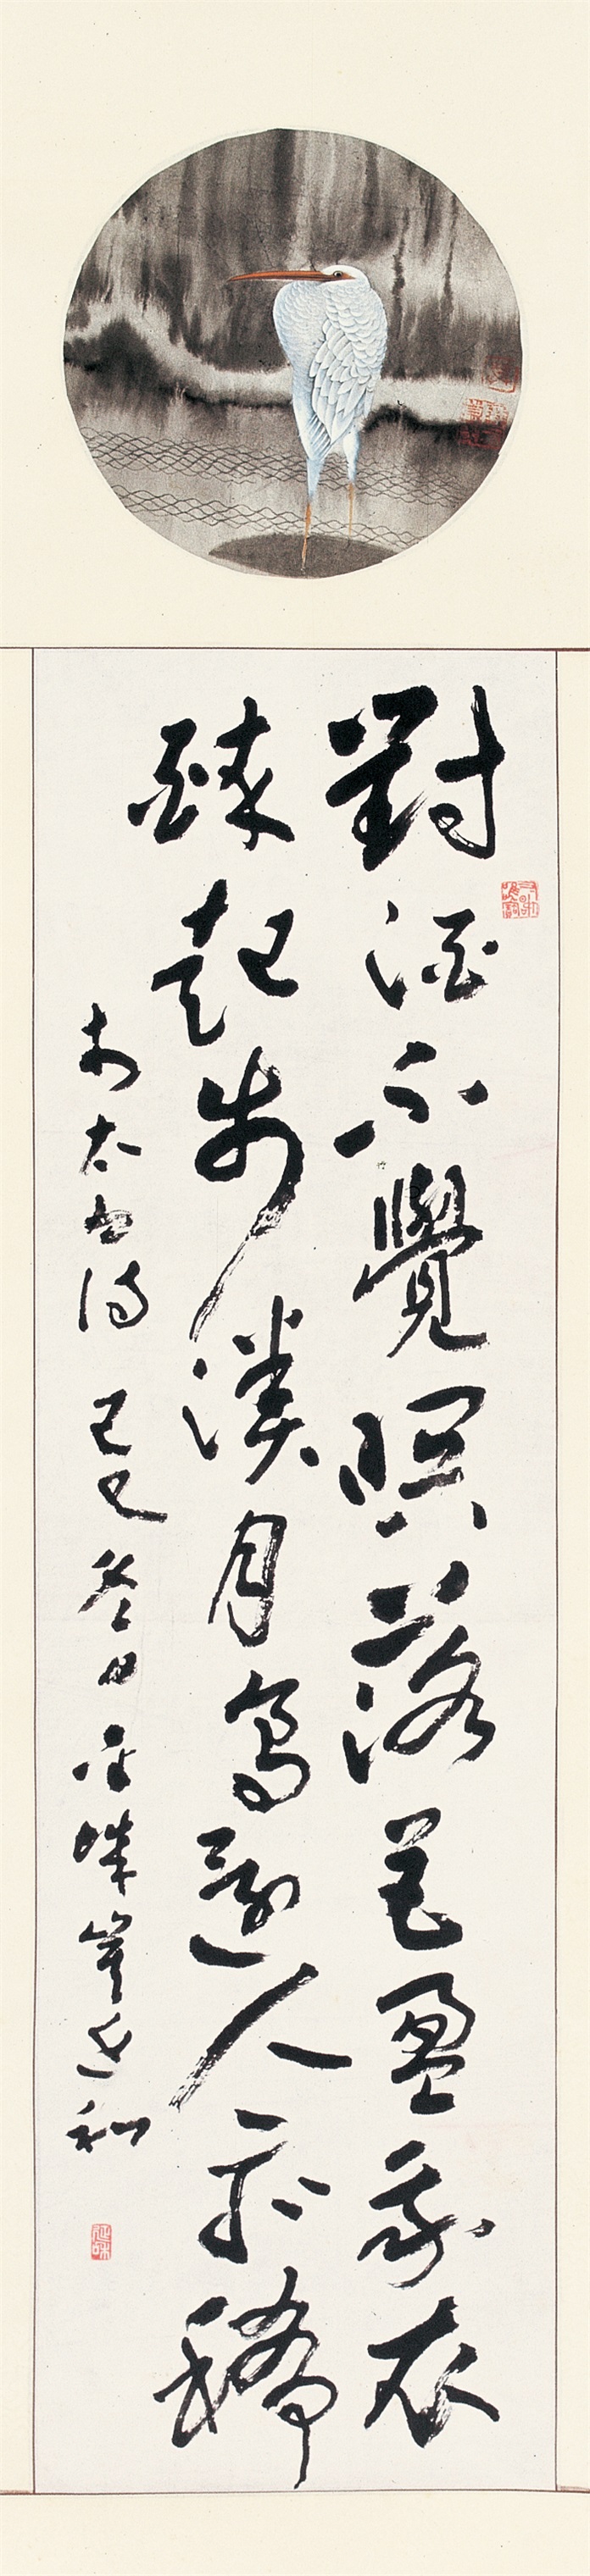 對酒不覺暝落花盈我衣
醉起步溪月鳥還人亦稀
李太白詩 己巳冬日 延和
延和